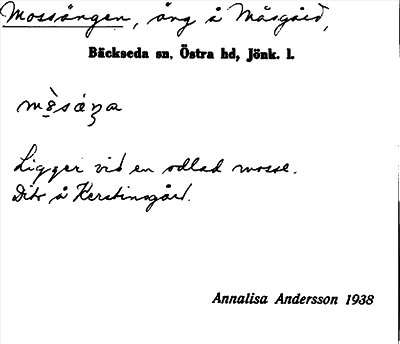 Mossängen, äng å Måsgård,
Bäckseda sn. Östra hd, Jönk. l.
Ligger vid en odlad mosse.
Dito å Kerstinsgård.
Annalisa Andersson 1938